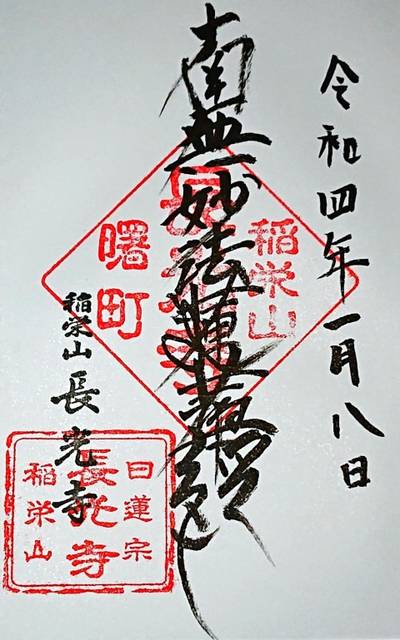 令和四年一月八日
南無妙法蓮華経
稲栄山
曙町
稲栄山 長光寺
日蓮宗
長光寺
稲栄山